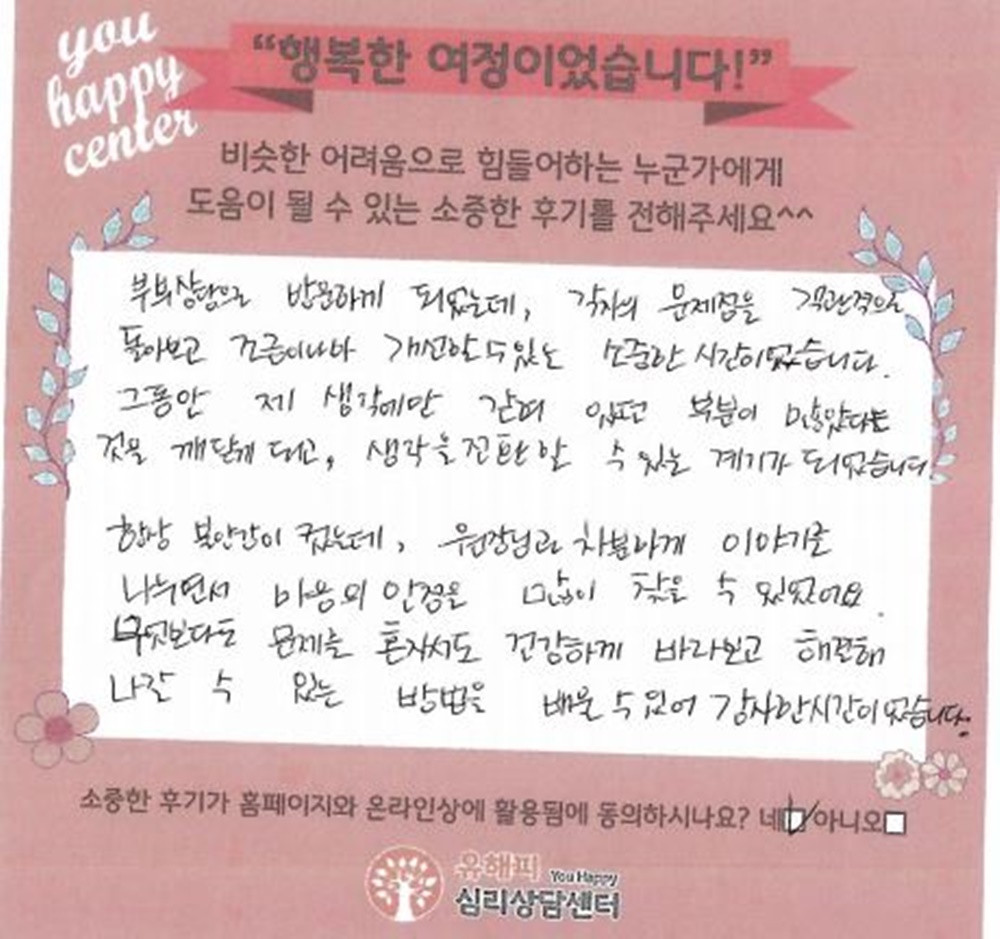 you
happy
center
“행복한 여정이었습니다!”
비슷한 어려움으로 힘들어하는 누군가에게
도움이 될 수 있는 소중한 후기를 전해주세요^^
부부상담으로 방문하게 되었는데, 각자의 문제점을 객관적으로
돌아보고 조금이나마 개선할 수 있는 소중한 시간이었습니다.
그동안 제 생각에만 갇혀 있던 부분이 많았다는
것을 깨닫게 되고, 생각을 전환할 수 있는 계기가 되었습니다.
항상 불안감이 컸는데, 원장님과 차분하게 이야기를
나누면서 마음의 안정을 많이 찾을 수 있었어요.
무엇보다도 문제를 혼자서도 건강하게 바라보고 해결해
나갈 수 있는 방법을 배울 수 있어 감사한 시간이었습니다.
소중한 후기가 홈페이지와 온라인상에 활용됨에 동의하시나요? 네 아니오
유해피 You Happy
심리상담센터